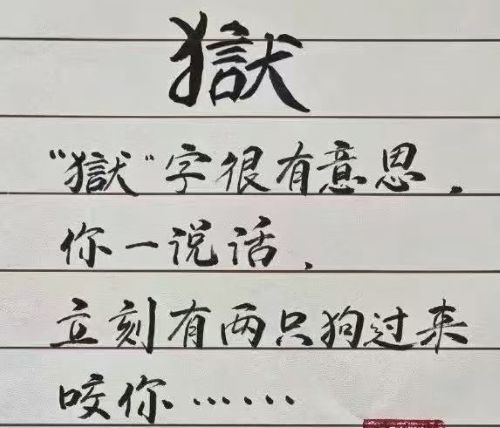 獄
“獄”字很有意思，
你一说话，
立刻有两只狗过来
咬你……